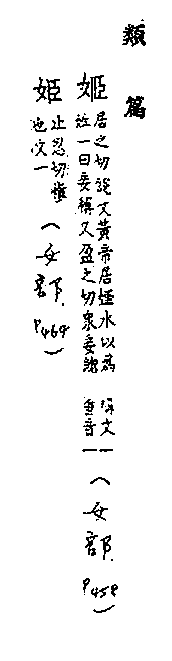 類篇
姬 居之切說文黃帝居姬水以為
姓一曰妾稱又盈之切衆妾總
稱文一
重音一
(女部. P458)
姫 止忍切慎
也文一
(女部. P464)